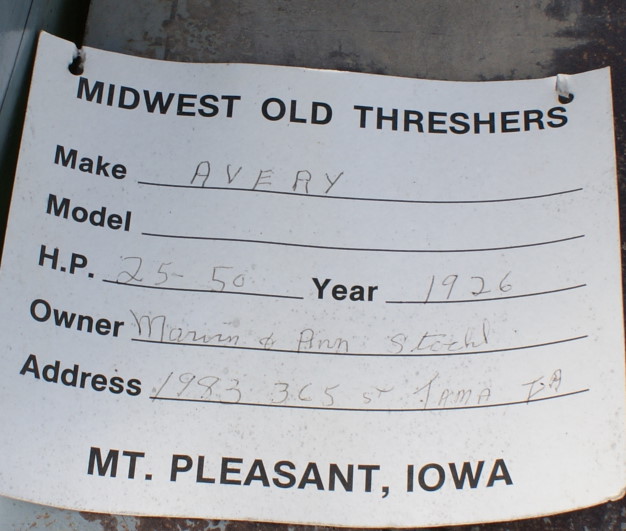 MIDWEST OLD THRESHERS
Make AVERY
Model
H.P. 25-50 Year 1926
Owner Marvin & Ann
Address 1983 365 ST TAMA IA
MT. PLEASANT, IOWA